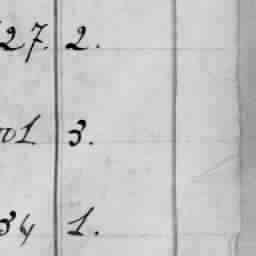 27. 2.
01 3.
34 1.